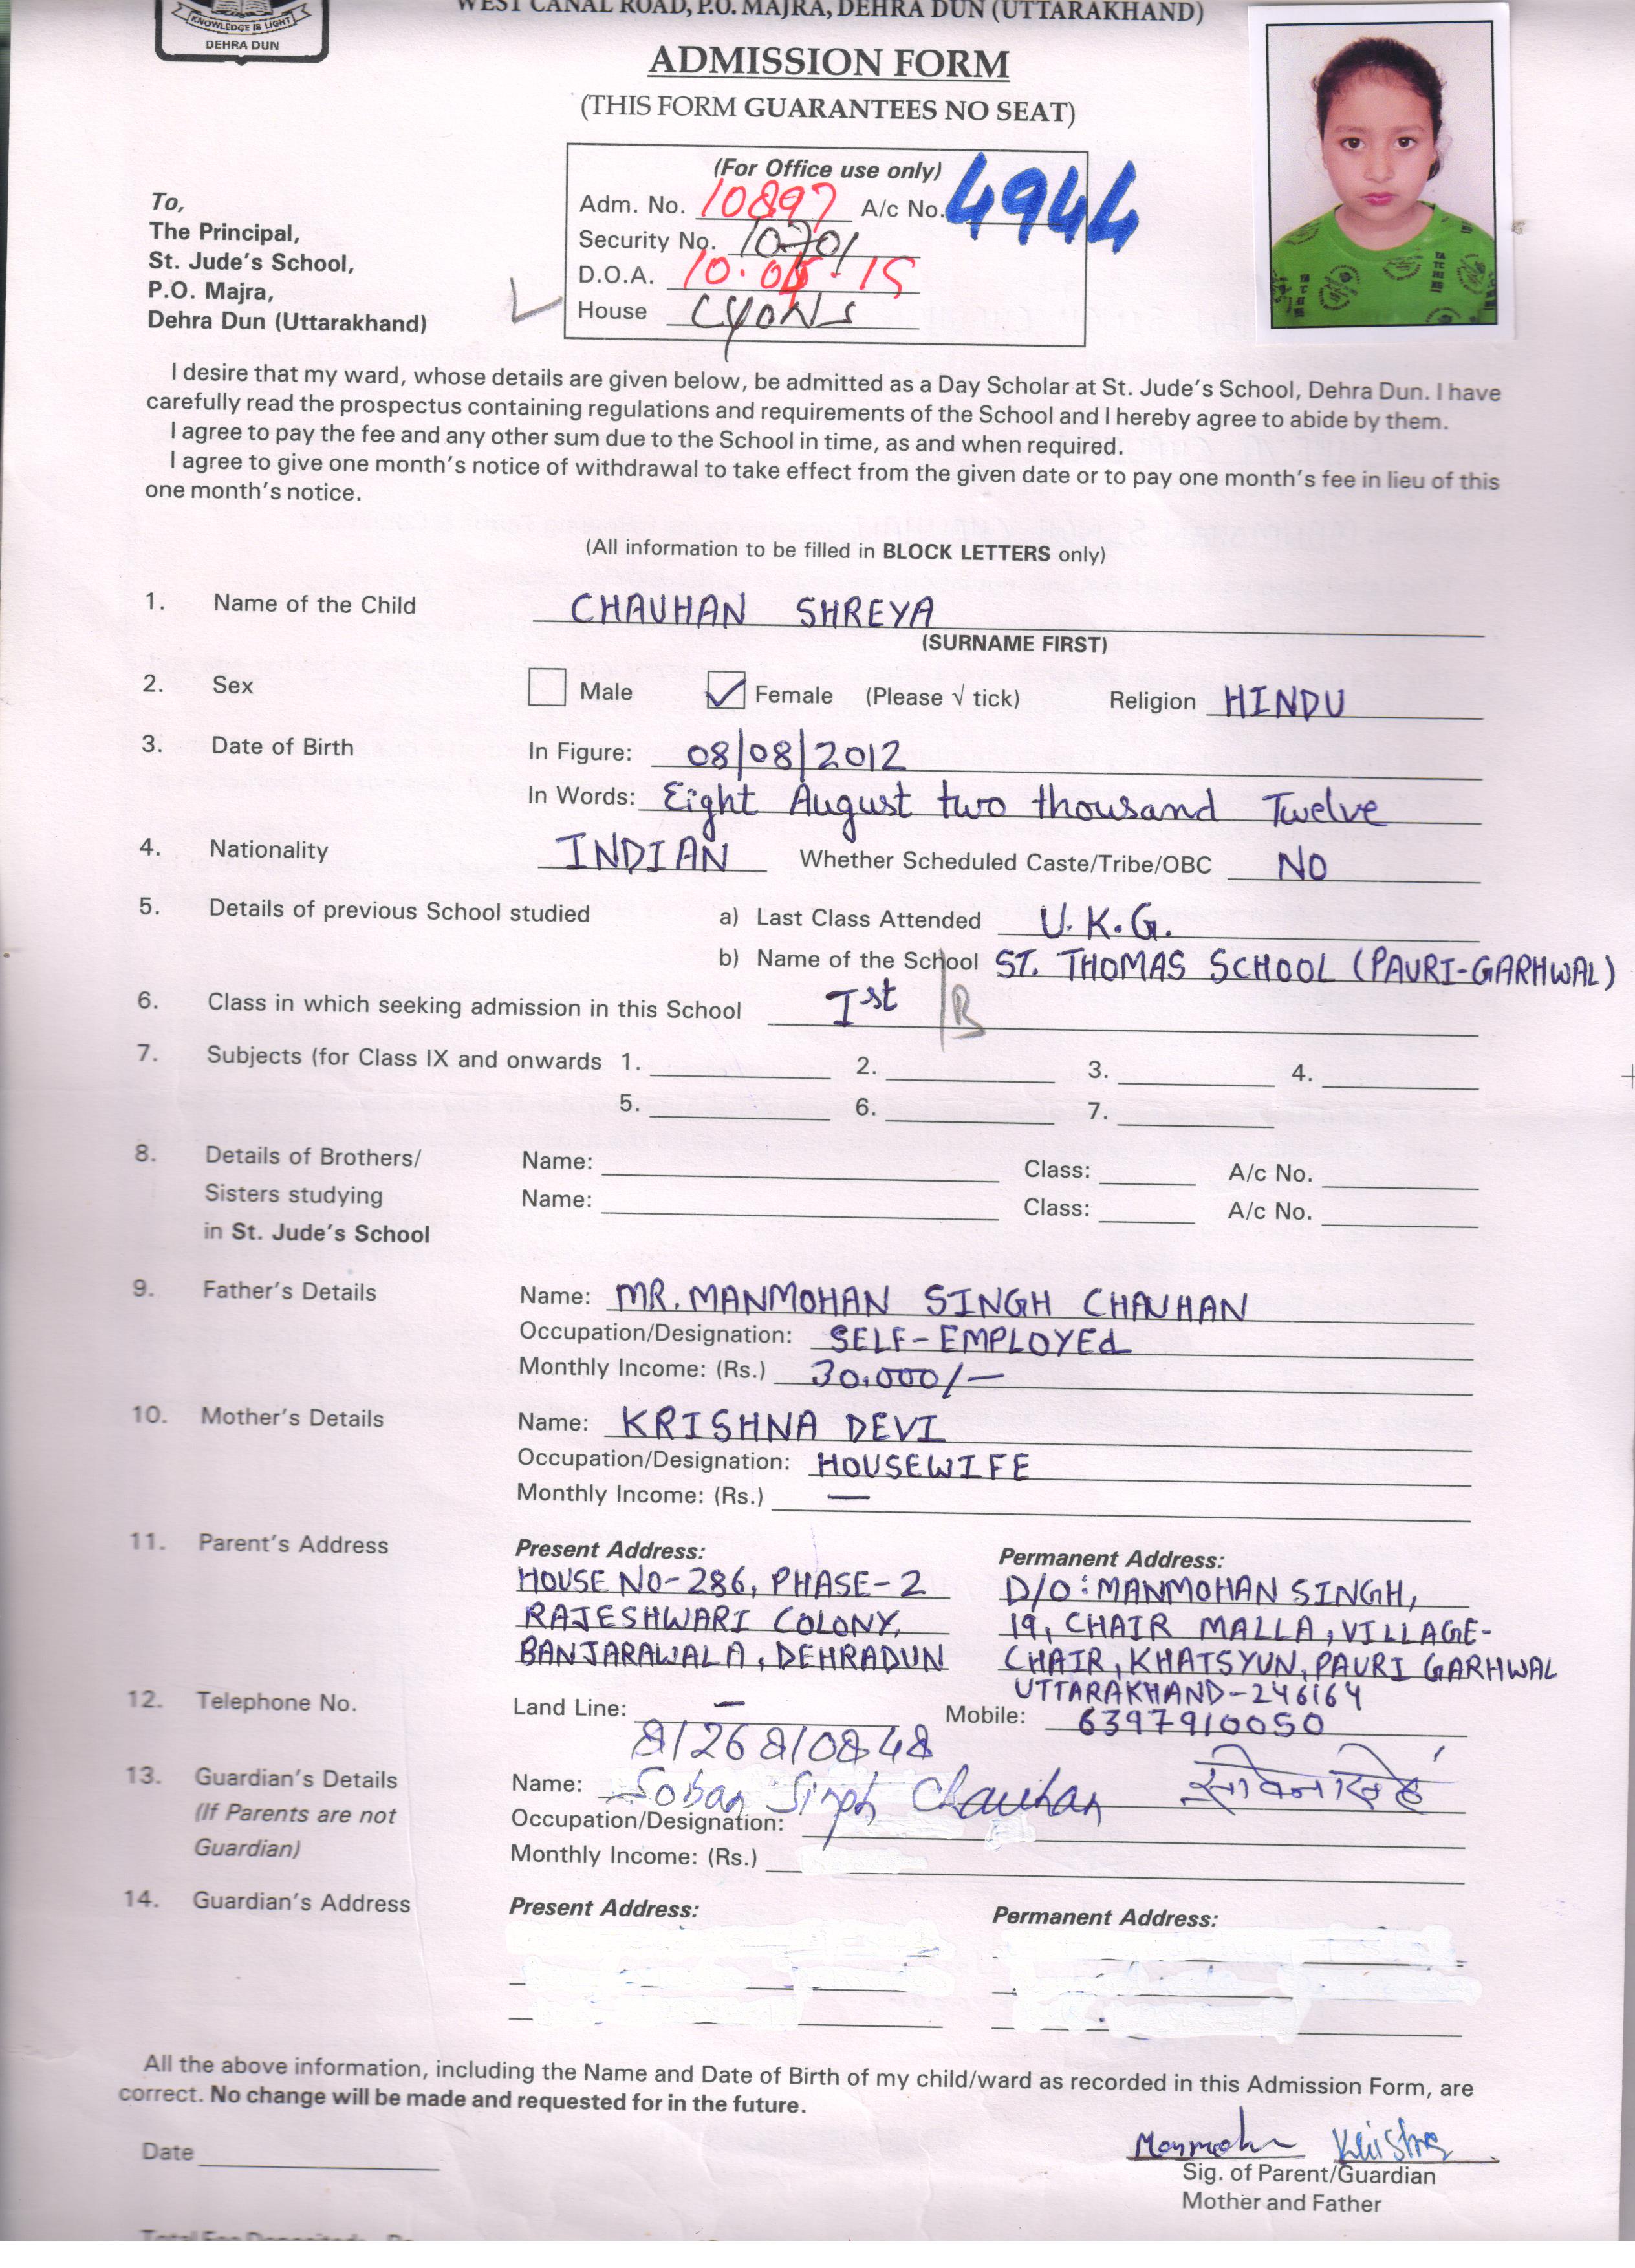 WEST CANAL ROAD, P.O. MAJRA, DEHRA DUN (UTTARAKHAND)
KNOWLEDGE IS LIGHT
DEHRA DUN
ADMISSION FORM
(THIS FORM GUARANTEES NO SEAT)
(For Office use only)
Adm. No. 10897 A/c No. 4944
Security No. 10701
D.O.A. 10.04.19
House Lyons
To,
The Principal,
St. Jude's School,
P.O. Majra,
Dehra Dun (Uttarakhand)
I desire that my ward, whose details are given below, be admitted as a Day Scholar at St. Jude's School, Dehra Dun. I have
carefully read the prospectus containing regulations and requirements of the School and I hereby agree to abide by them.
I agree to pay the fee and any other sum due to the School in time, as and when required.
I agree to give one month's notice of withdrawal to take effect from the given date or to pay one month's fee in lieu of this
one month's notice.
(All information to be filled in BLOCK LETTERS only)
1. Name of the Child CHAUHAN SHREYA
(SURNAME FIRST)
2. Sex Male Female (Please √ tick) Religion HINDU
3. Date of Birth In Figure: 08/08/2012
In Words: Eight August two thousand Twelve
4. Nationality INDIAN Whether Scheduled Caste/Tribe/OBC NO
5. Details of previous School studied a) Last Class Attended U.K.G.
b) Name of the School ST. THOMAS SCHOOL (PAURI-GARHWAL)
6. Class in which seeking admission in this School Ist /B
7. Subjects (for Class IX and onwards 1. 2. 3. 4.
5. 6. 7.
8. Details of Brothers/ Name: Class: A/c No.
Sisters studying Name: Class: A/c No.
in St. Jude's School
9. Father's Details Name: MR. MANMOHAN SINGH CHAUHAN
Occupation/Designation: SELF-EMPLOYEd
Monthly Income: (Rs.) 30,000/-
10. Mother's Details Name: KRISHNA DEVI
Occupation/Designation: HOUSEWIFE
Monthly Income: (Rs.) —
11. Parent's Address Present Address: Permanent Address:
HOUSE NO-286, PHASE-2 D/O: MANMOHAN SINGH,
RAJESHWARI COLONY, 19, CHAIR MALLA, VILLAGE-
BANJARAWALA, DEHRADUN CHAIR, KHATSYUN, PAURI GARHWAL
UTTARAKHAND-246164
12. Telephone No. Land Line: — Mobile: 6397910050
8126810848
13. Guardian's Details Name: Soban Singh Chauhan
(If Parents are not Occupation/Designation:
Guardian) Monthly Income: (Rs.)
14. Guardian's Address Present Address: Permanent Address:
All the above information, including the Name and Date of Birth of my child/ward as recorded in this Admission Form, are
correct. No change will be made and requested for in the future.
Date
Krishna
Sig. of Parent/Guardian
Mother and Father